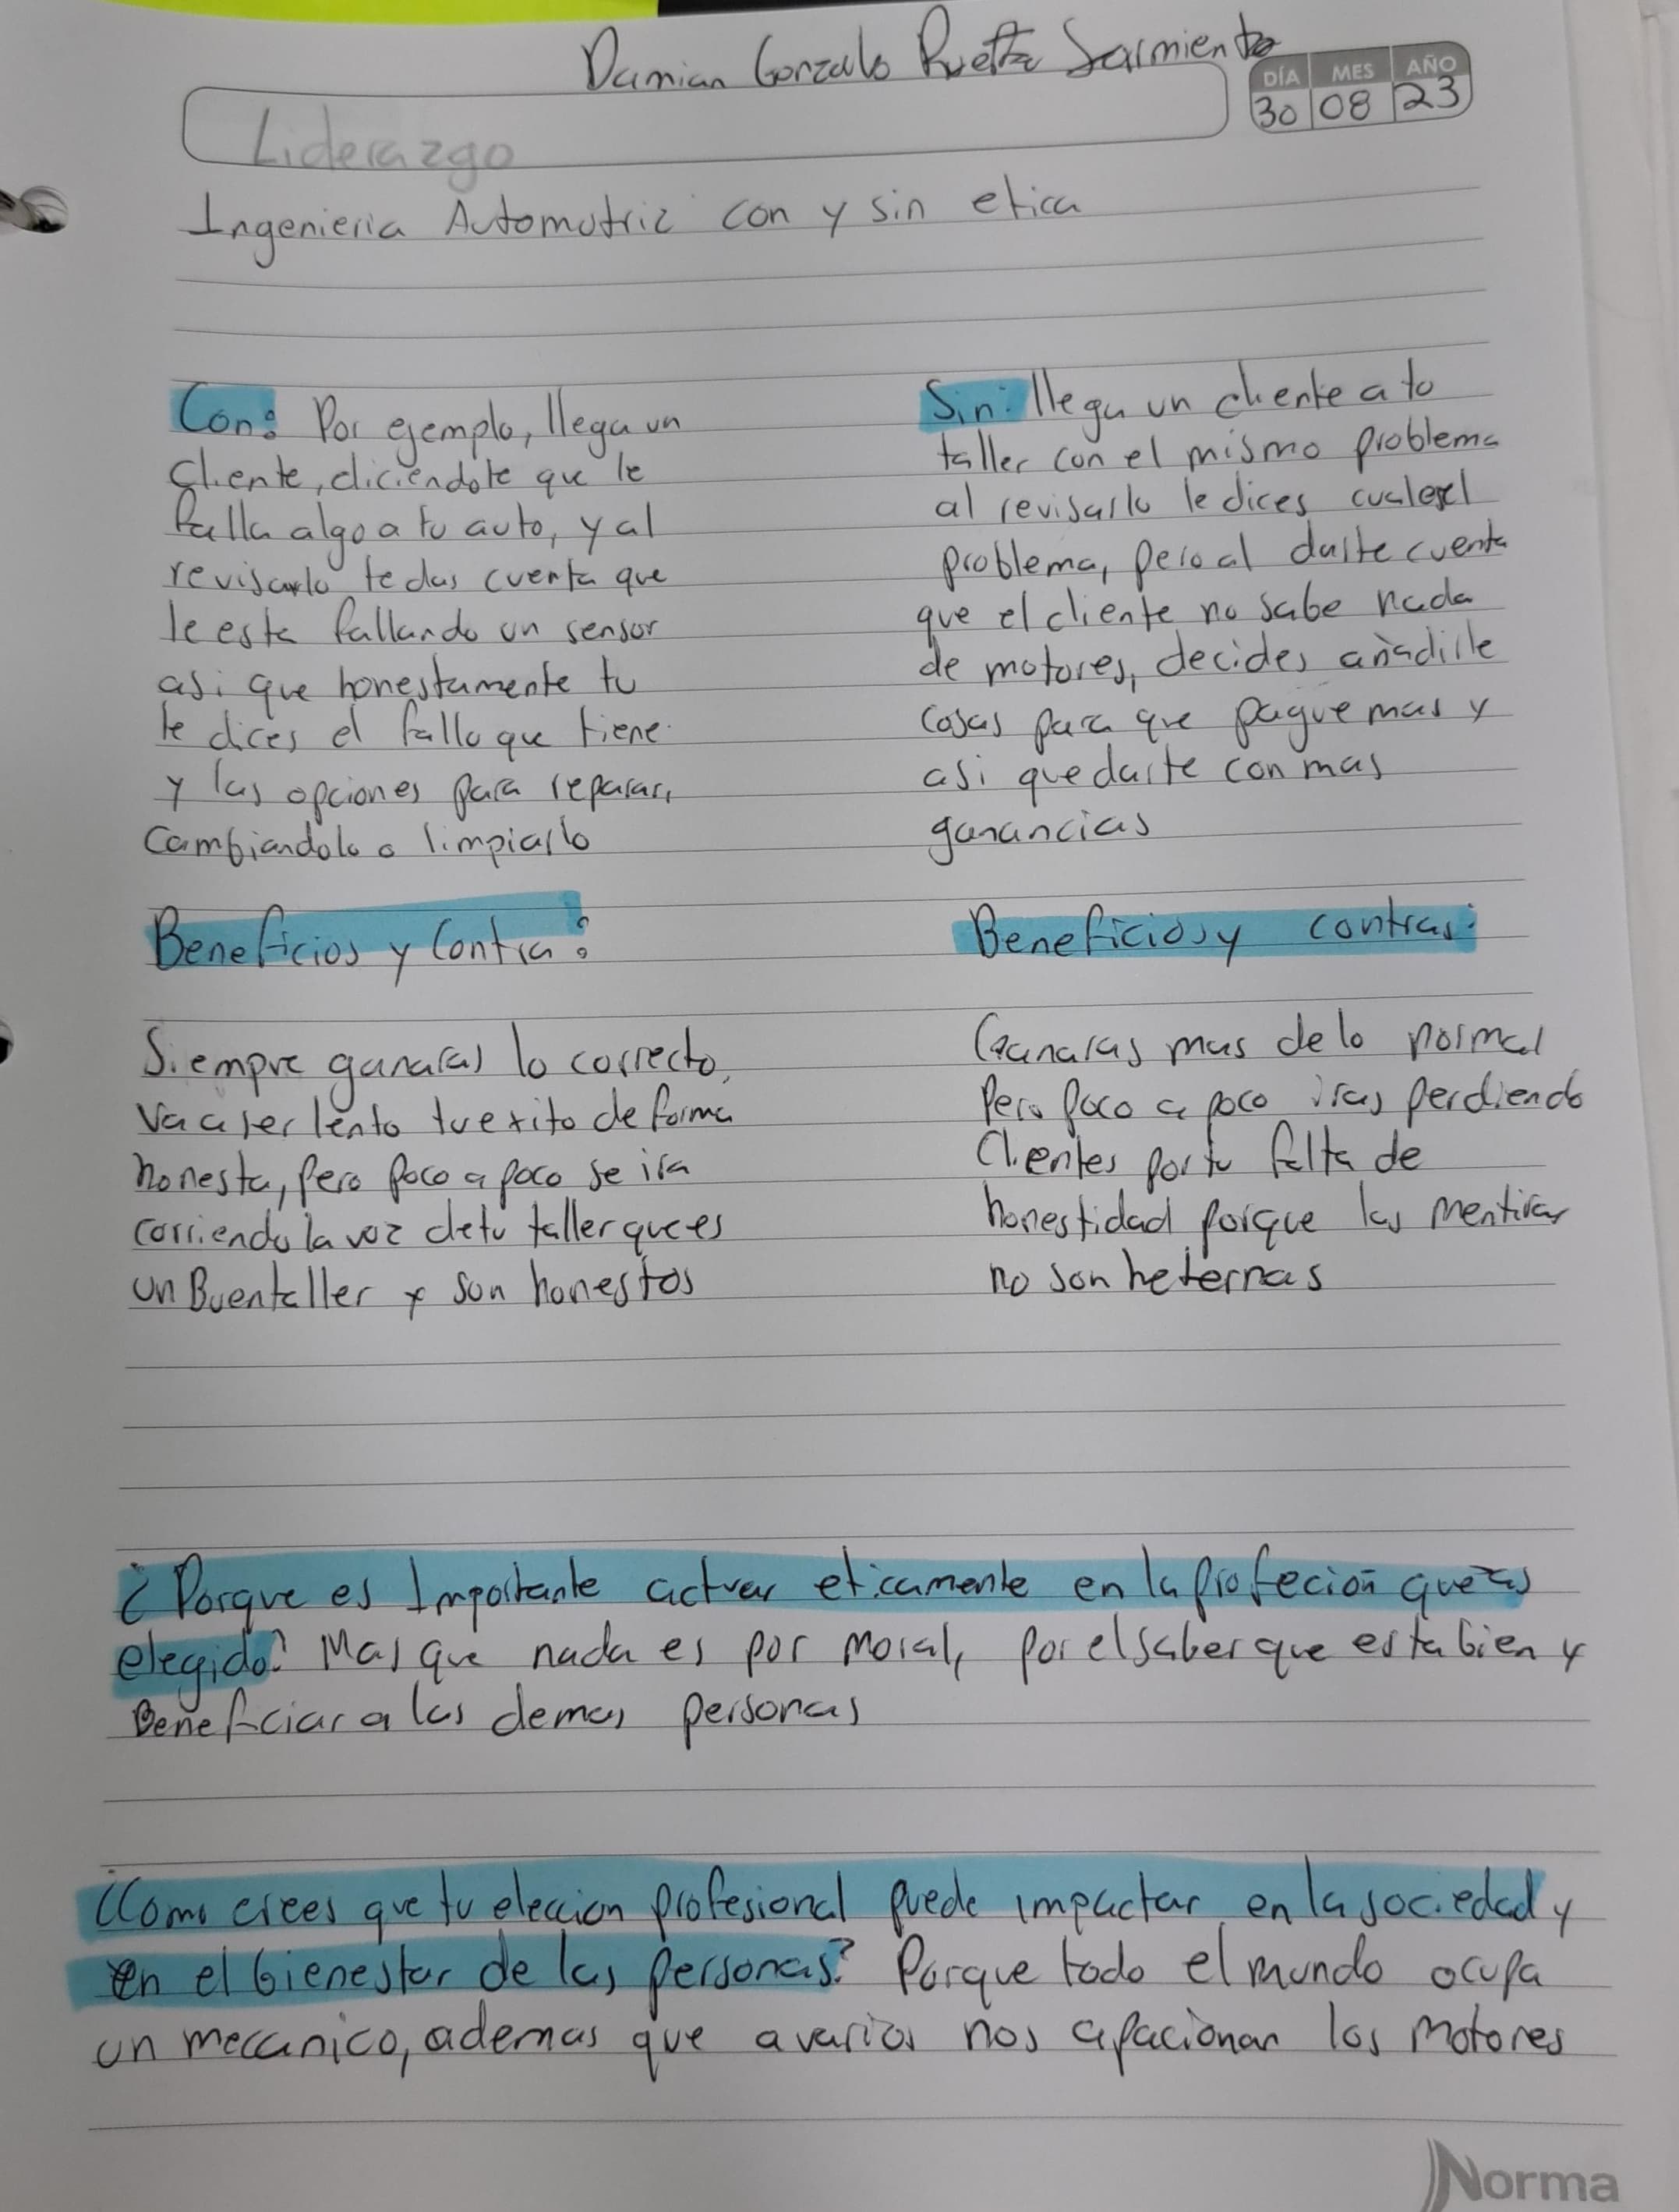 Damian Gonzalo Sarmiento
DÍA MES AÑO
30 08 23
Liderazgo
Ingenieria Automotriz con y sin etica
Con: Por ejemplo, llega un
cliente, diciendote que le
falla algo a tu auto, y al
revisarlo te das cuenta que
le esta fallando un sensor
asi que honestamente tu
le dices el fallo que tiene
y las opciones para reparar,
cambiandolo o limpiarlo
Beneficios y Contra:
Siempre ganaras lo correcto,
Va a ser lento tu exito de forma
honesta, pero poco a poco se ira
corriendo la voz de tu taller que es
un Buen taller y son honestos
Sin: llega un cliente a tu
taller con el mismo problema
al revisarlo le dices cual es el
problema, pero al darte cuenta
que el cliente no sabe nada
de motores, decides añadirle
cosas para que pague mas y
asi quedarte con mas
ganancias
Beneficios y contras:
Ganaras mas de lo normal
Pero poco a poco iras perdiendo
Clientes por tu falta de
honestidad porque las mentiras
no son heternas
¿Porque es Importante actuar eticamente en la profecion que as
elegido? Mas que nada es por moral, por el saber que esta bien y
Beneficiar a las demas personas
¿Como crees que tu eleccion profesional puede impactar en la sociedad y
en el bienestar de las personas? Porque todo el mundo ocupa
un mecanico, ademas que a varios nos apacionan los motores
Norma